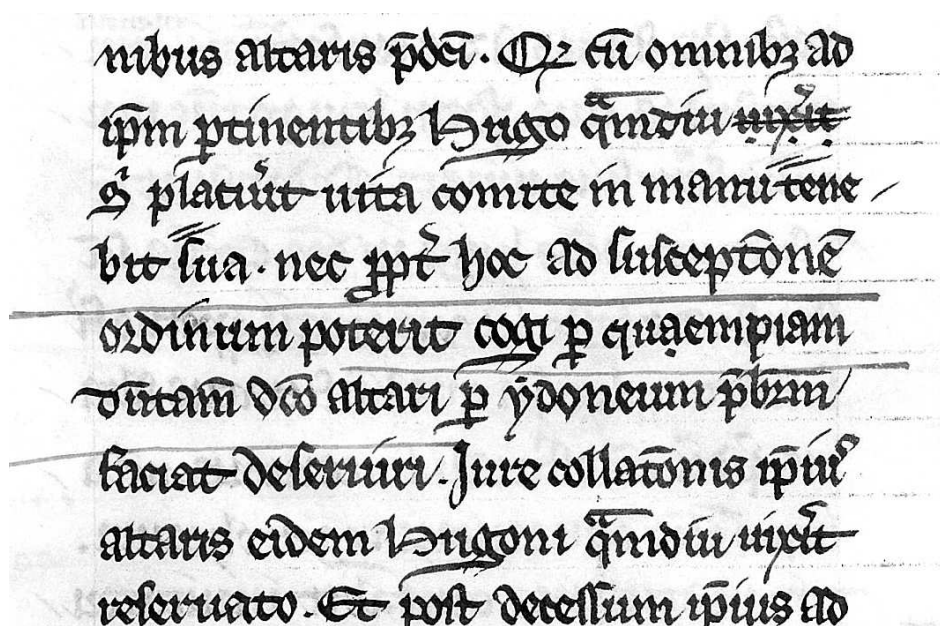 nibus altaris p̄dc̄i. Qꝛ cū omnibꝫ ad
ip̄m ꝑtinentibꝫ Hugo qᵃmdiu uix̓it
sꝰ placu̓it uita comite in manu tene
bit sua. nec ꝓpt̓ hoc ad suscepc̄onē
ordinum poterit cogi ꝑ quaempiam
dūtam̄ dc̄o altari ꝑ ydoneum p̄brm̄
faciat deseruiri. Iure collac̄onis ip̄iꝰ
altaris eidem Hugoni qᵃmdiu uix̓it
reseruato. Et post decessum ip̄ius ad